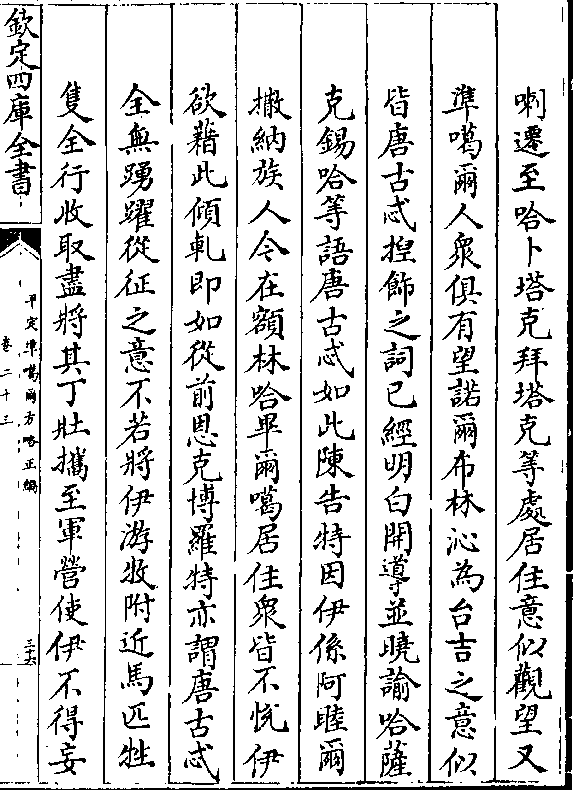 喇遷至哈卜塔克拜塔克等處居住意似觀望又
準噶爾人衆俱有望諾爾布林沁為台吉之意似
皆唐古忒揑飾之詞已經明白開導並曉諭哈薩
克錫哈等語唐古忒如此陳告特因伊係阿睦爾
撒納族人令在額林哈畢爾噶居住衆皆不悅伊
欲藉此傾軋即如從前恩克博羅特亦謂唐古忒
全無踴躍從征之意不若將伊游牧附近馬匹牲
隻全行收取盡將其丁壯攜至軍營使伊不得妄
欽定四庫全書
平定準噶爾方略正編
卷二十三
三十六